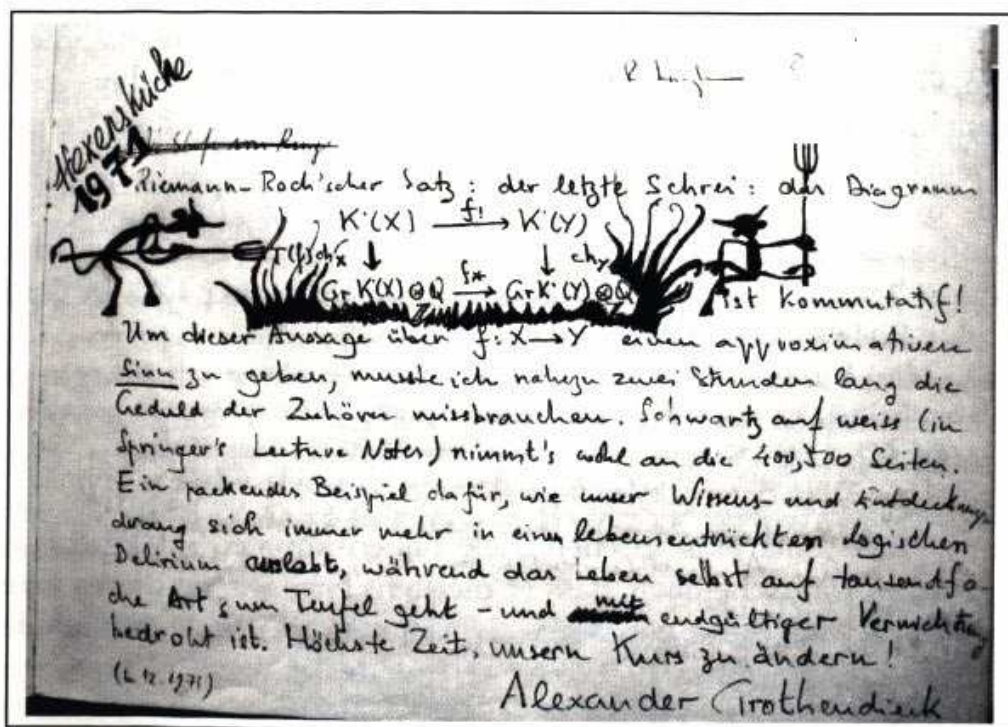 Hexenküche
1971
Riemann-Roch'scher Satz: der letzte Schrei: das Diagramm
K˙(X) f! → K˙(Y)
T(f)ch_X ↓ ↓ ch_Y
Gr K˙(X) ⊗_Z Q f* → Gr K˙(Y) ⊗_Z Q
ist kommutatif!
Um dieser Aussage über f: X → Y einen approximativen
Sinn zu geben, musste ich nahezu zwei Stunden lang die
Geduld der Zuhörer missbrauchen. Schwartz auf weiss (in
Springer's Lecture Notes) nimmt's wohl an die 400, 500 Seiten.
Ein packendes Beispiel dafür, wie unser Wissens- und Entdeckungs
drang sich immer mehr in einem lebensentrückten logischen
Delirium auslebt, während das Leben selbst auf tausendfa-
che Art zum Teufel geht - und mit endgültiger Vernichtung
bedroht ist. Höchste Zeit, unsern Kurs zu ändern!
12.1971)
Alexander Grothendieck